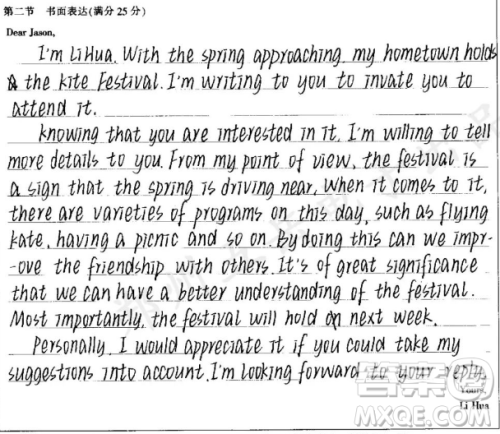 第二节 书面表达(满分25分)
Dear Jason,
I'm LiHua. With the spring approaching, my hometown holds
the kite Festival. I'm writing to you to invate you to
attend it.
knowing that you are interested in it, I'm willing to tell
more details to you. From my point of view, the festival is
a sign that the spring is driving near. When it comes to it,
there are varieties of programs on this day, such as flying
kate, having a picnic and so on. By doing this can we impr-
-ove the friendship with others. It's of great significance
that we can have a better understanding of the festival.
Most importantly, the festival will hold on next week.
Personally, I would appreciate it if you could take my
suggestions into account. I'm looking forward to your reply.
Yours,
Li Hua
MXQE.COM